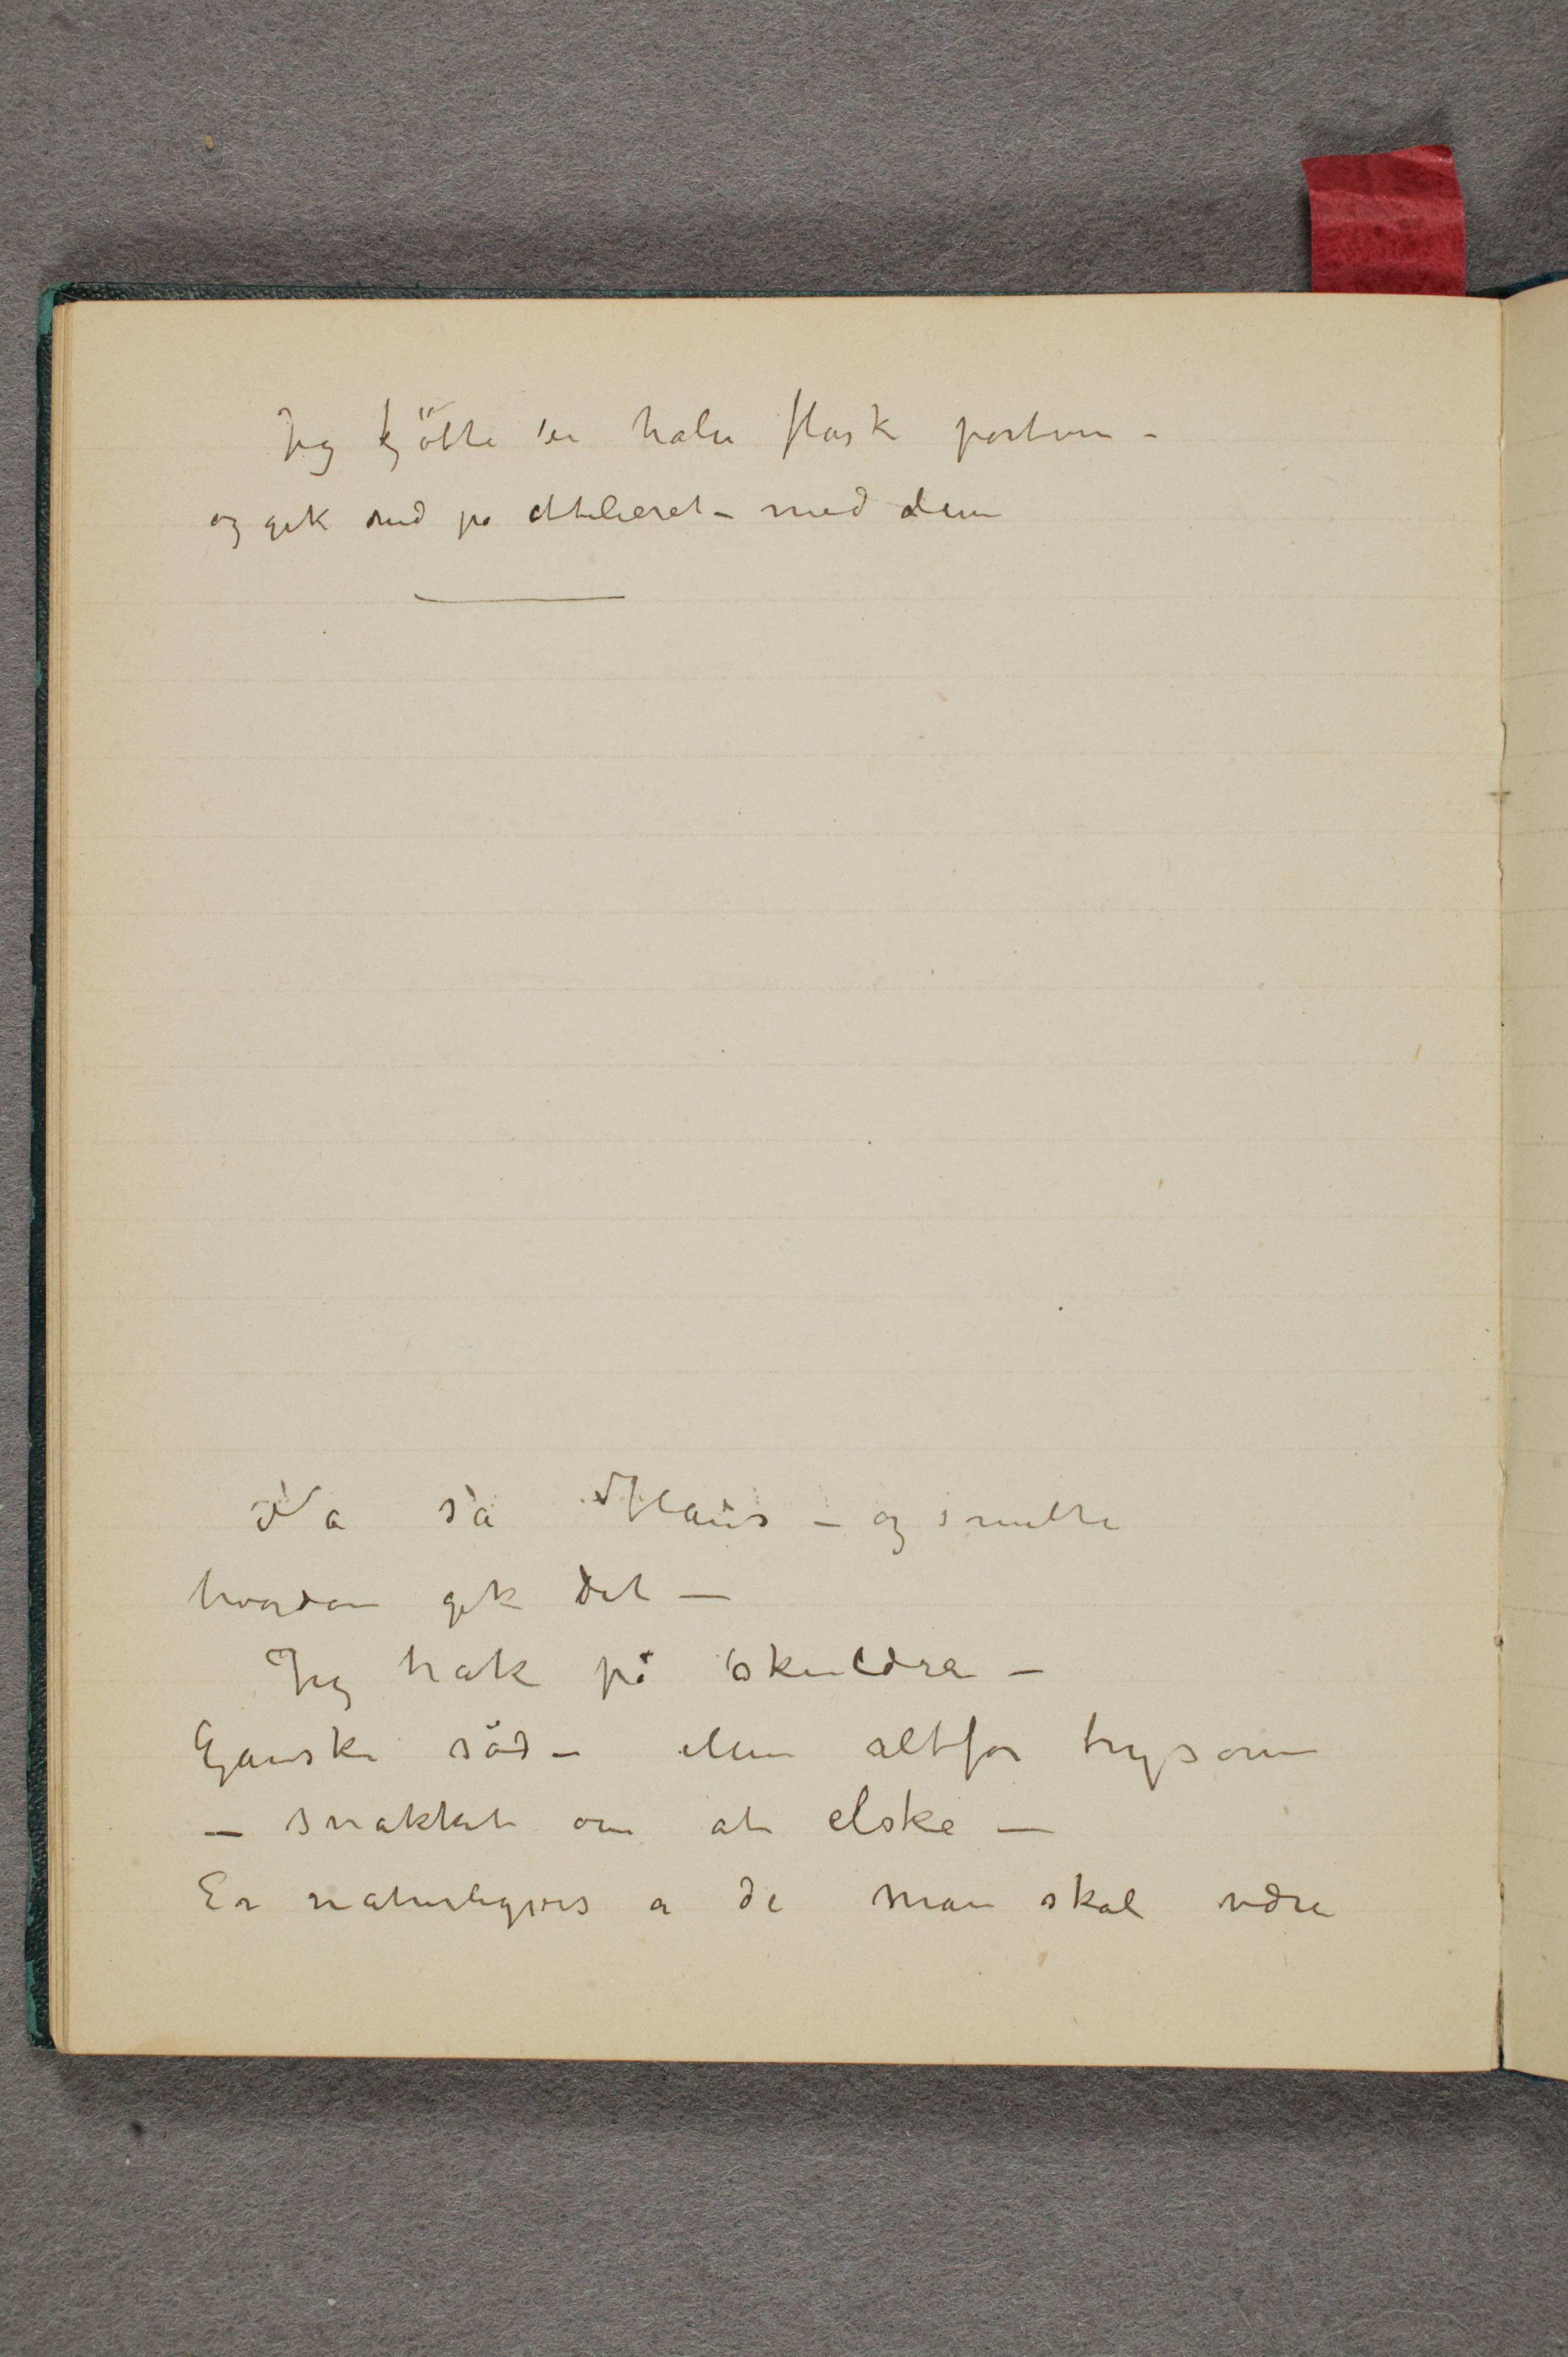 Jeg kjöbte en halv flask portvin –
og gik ned på Attelieret – med dem
Na så Hans – og smilte
hvordan gik det –
Jeg trak på skuldren –
Ganske söd – Men altfor trysom
– snakket om at elske –
Er naturligvis a de man skal være